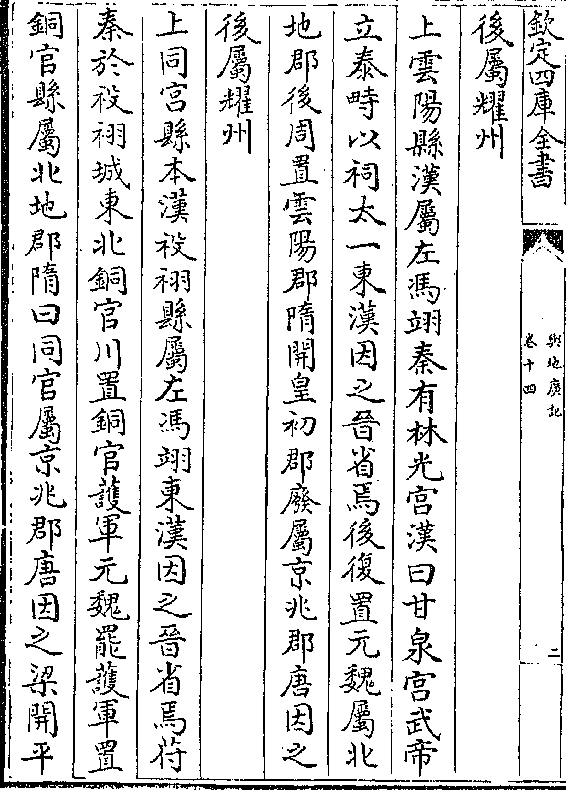 欽定四庫全書
輿地廣記
卷十四
二
後屬耀州
上雲陽縣漢屬左馮翊秦有林光宫漢曰甘泉宫武帝
立泰畤以祠太一東漢因之晉省焉後復置元魏屬北
地郡後周置雲陽郡隋開皇初郡廢屬京兆郡唐因之
後屬耀州
上同宫縣本漢祋祤縣屬左馮翊東漢因之晉省焉苻
秦於祋祤城東北銅官川置銅官護軍元魏罷護軍置
銅官縣屬北地郡隋曰同官屬京兆郡唐因之梁開平